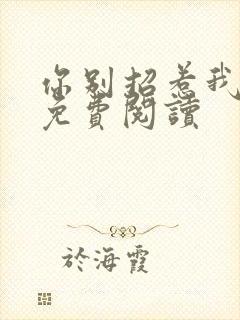 你别招惹我
免費閱讀
於海霞